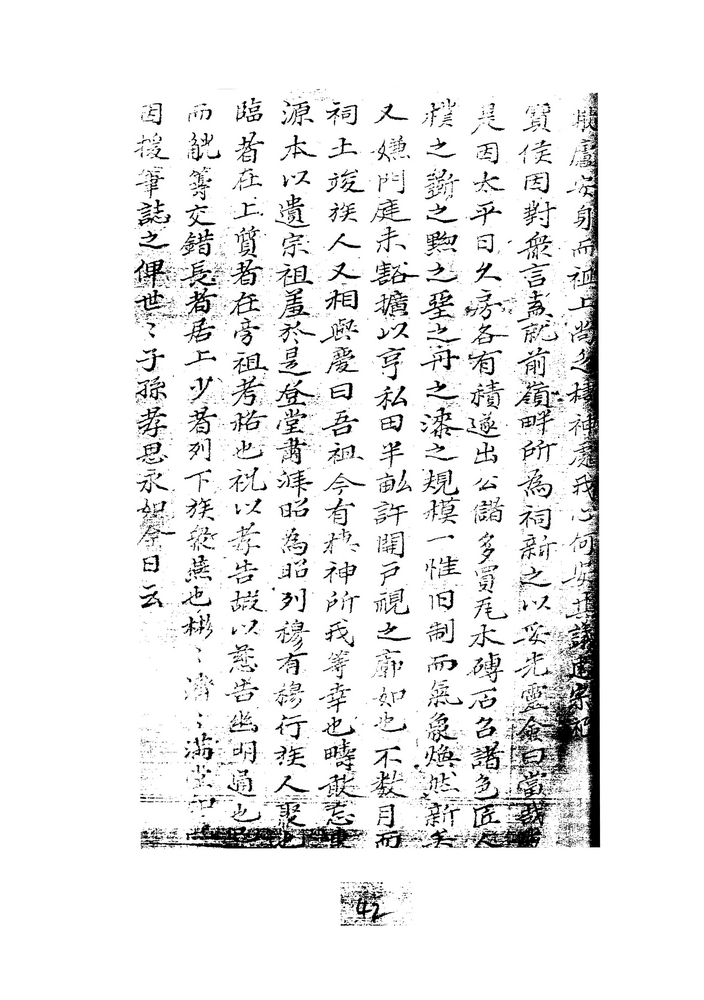 廬安身而祖上尚乏棲神處我心何安其議建宗祠
賓侯因對衆言盍就前嶺畔所為祠新之以妥先靈僉曰當哉
是因太平日久房各有積遂出公儲多買瓦木磚石召諸色匠人
樸之斵之黝之堊之丹之漆之規模一惟旧制而氣象煥然新矣
又嫌門庭未豁擴以亨私田半畝許開戶視之廓如也不数月而
祠土竣族人又相與慶曰吾祖今有棲神所我等幸也疇敢忘
源本以遺宗祖羞於是登堂肅拜昭為昭列穆有穆行族人聚也
臨者在上質者在旁祖考格也祝以孝告嘏以慈告幽明通也
而觥籌交錯長者居上少者列下族衆燕也彬〻濟〻滿堂
因援筆誌之俾世〻子孫孝思永如今日云
42